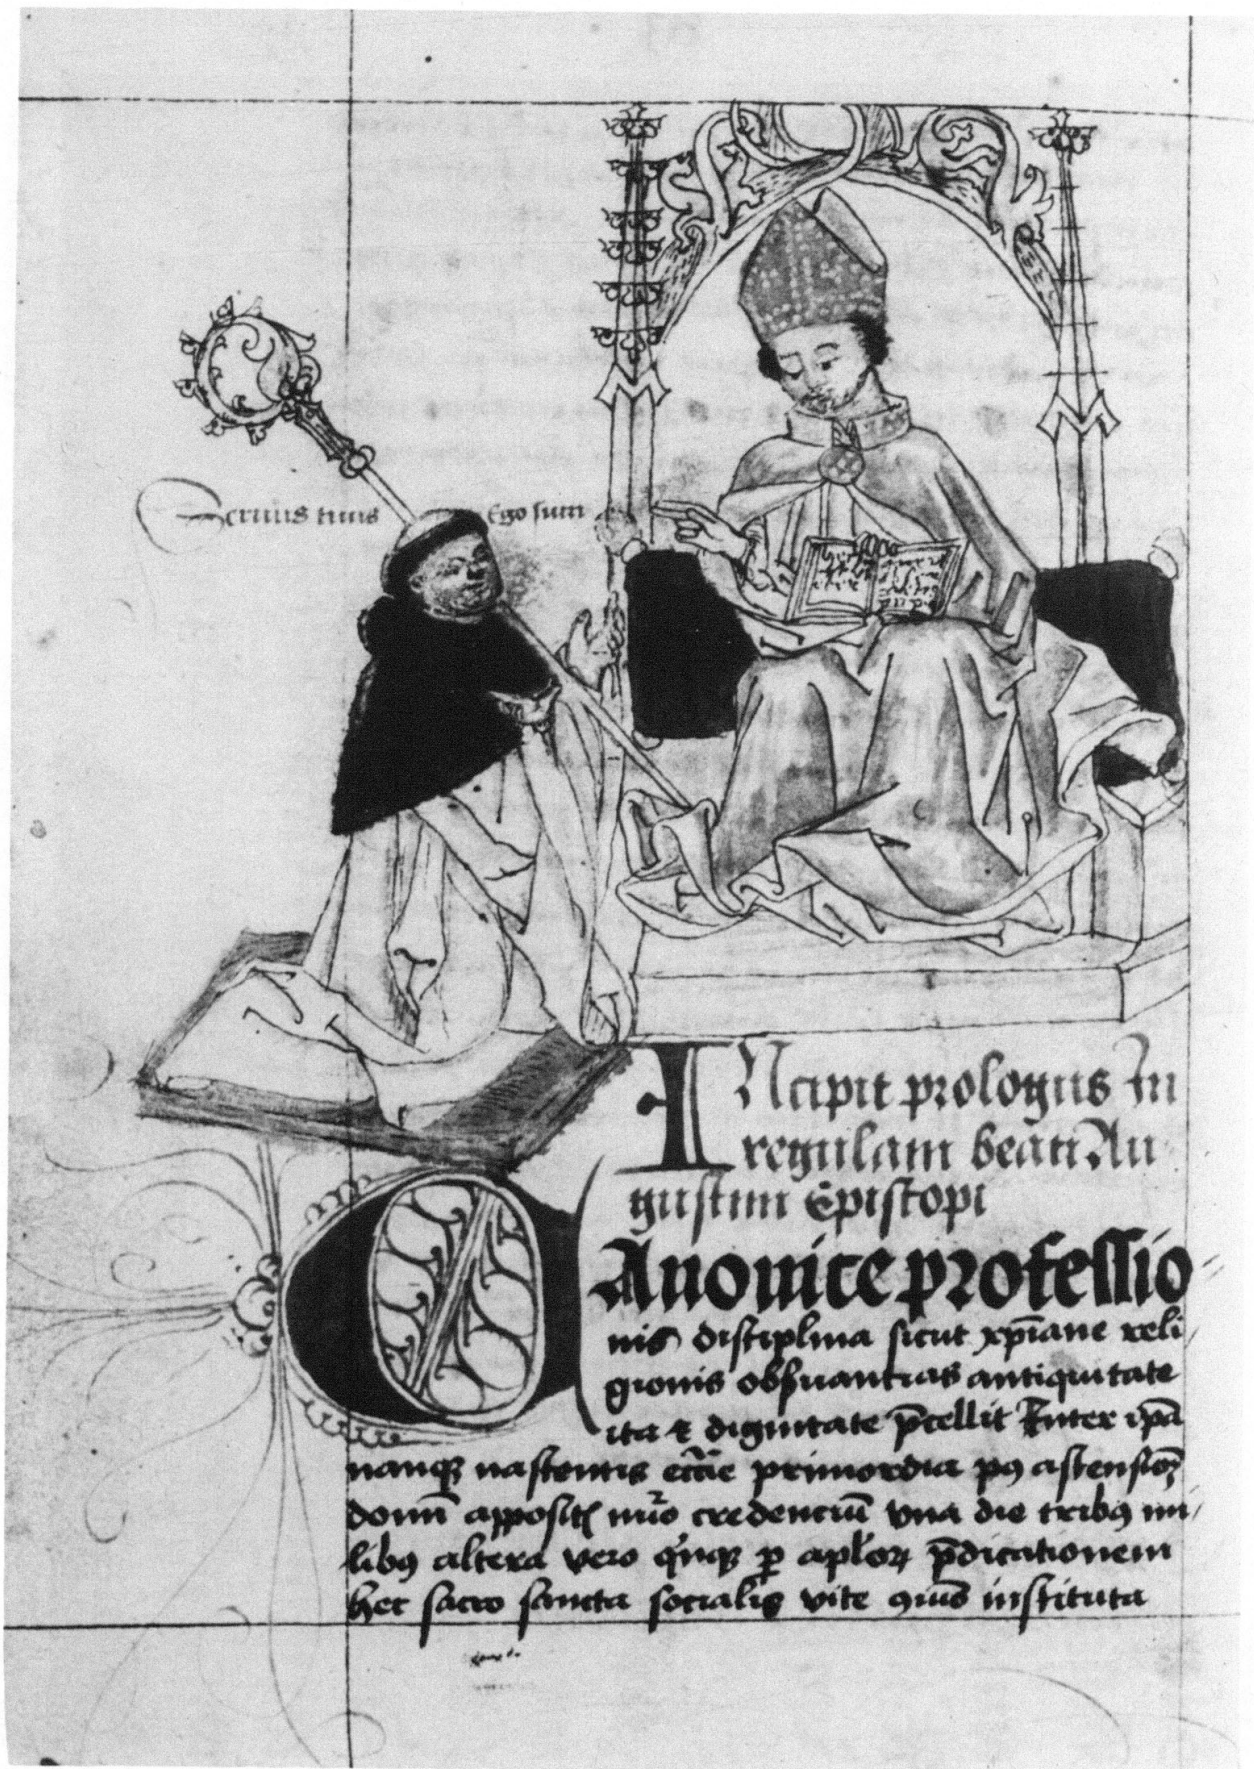 Seruus tuus Ego sum
INcipit prologus In
regulam beati Au
gustini Episcopi
CAnonice professio
nis disciplina sicut xp̄iane reli
gionis obẜuantias antiquitate
ita ⁊ dignitate p̄cellit Inter ip̄a
nanqꝫ nascentis ecc̄ie primordia pꝯ ascensionē
domī appositꝭ nūo credenciū vna die tribꝯ mi
libꝯ altera vero q'nqꝫ ꝑ apl'oꝝ p̄dicationem
hec sacro sancta socialis vite instituta